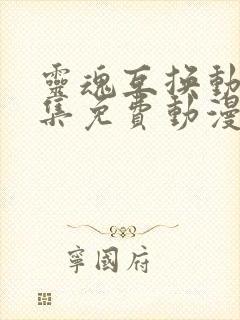 靈魂互換動
集免費動漫
寧國府